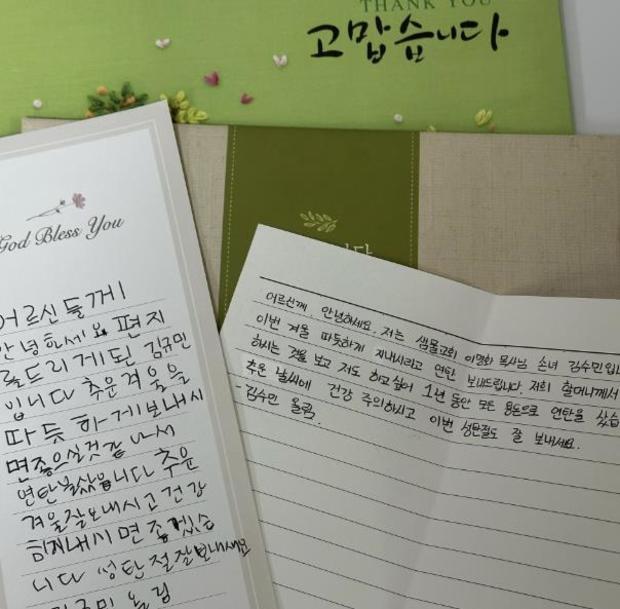 THANK YOU
고맙습니다
God Bless You
어르신들께
안녕하세요 편지
를드리게된 김규민
입니다 추운겨울을
따듯하게보내시
면좋으실것같아서
연탄불샀습니다 추운
겨울잘보내시고건강
해지내시면좋겠습
니다 성탄절잘보내세요
올림
어르신께. 안녕하세요. 저는 샘물교회 이명화 목사님 손녀 김수민입니
이번 겨울 따뜻하게 지내시라고 연탄 보내드립니다. 저희 할머니께서
하시는 것을 보고 저도 하고싶어 1년 동안 모은 용돈으로 연탄을 샀습
추운 날씨에 건강 주의하시고 이번 성탄절도 잘 보내세요.
-김수민 올림.